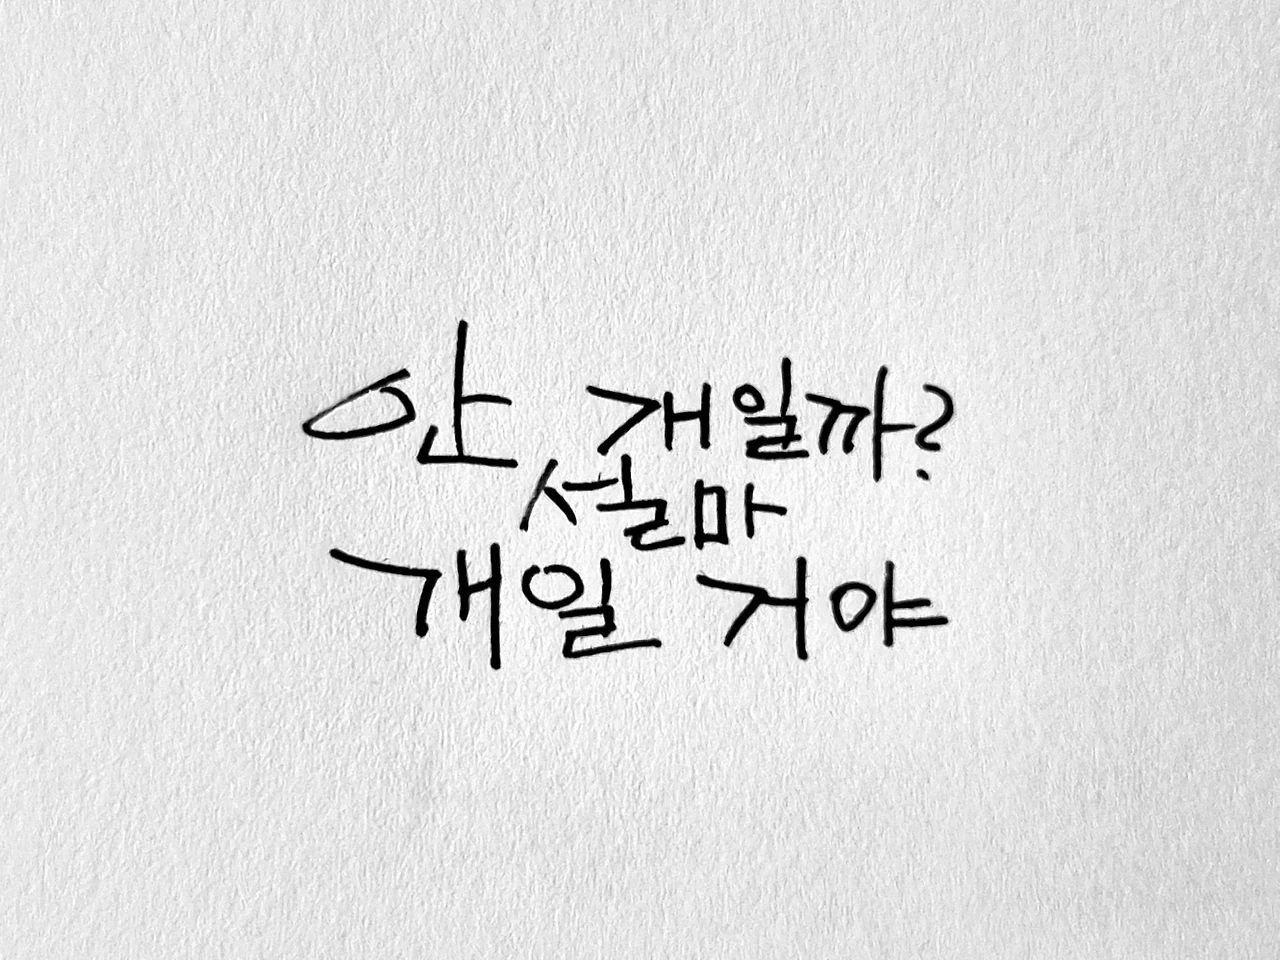 안 개일까?
설마
개일 거야